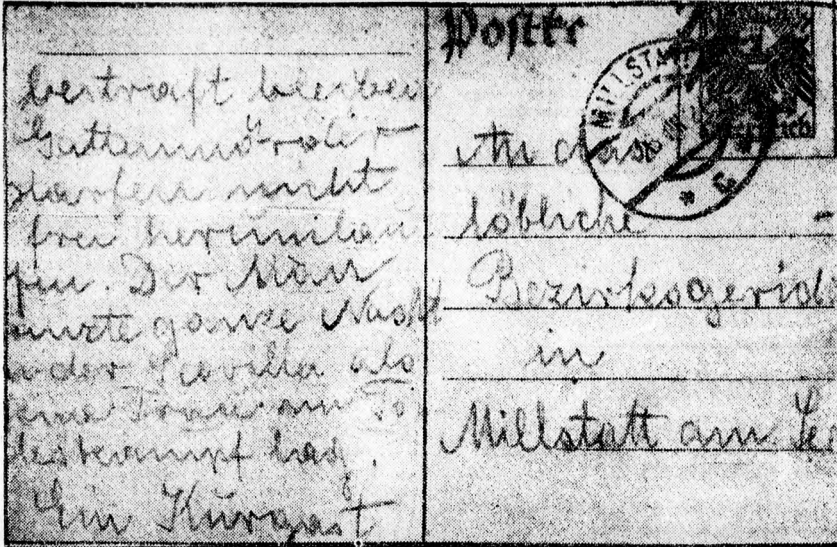 bestraft bleiben
Gattenmörder
dürfen nicht
frei herumlau
fen. Der Mann
anzte ganze Nacht
n der Seevilla als
eine Frau im To
deskampf lag.
Ein Kurgast
Postk
MILLSTAT
* C
An das
löbliche -
Bezirksgerich
in
Millstatt am See